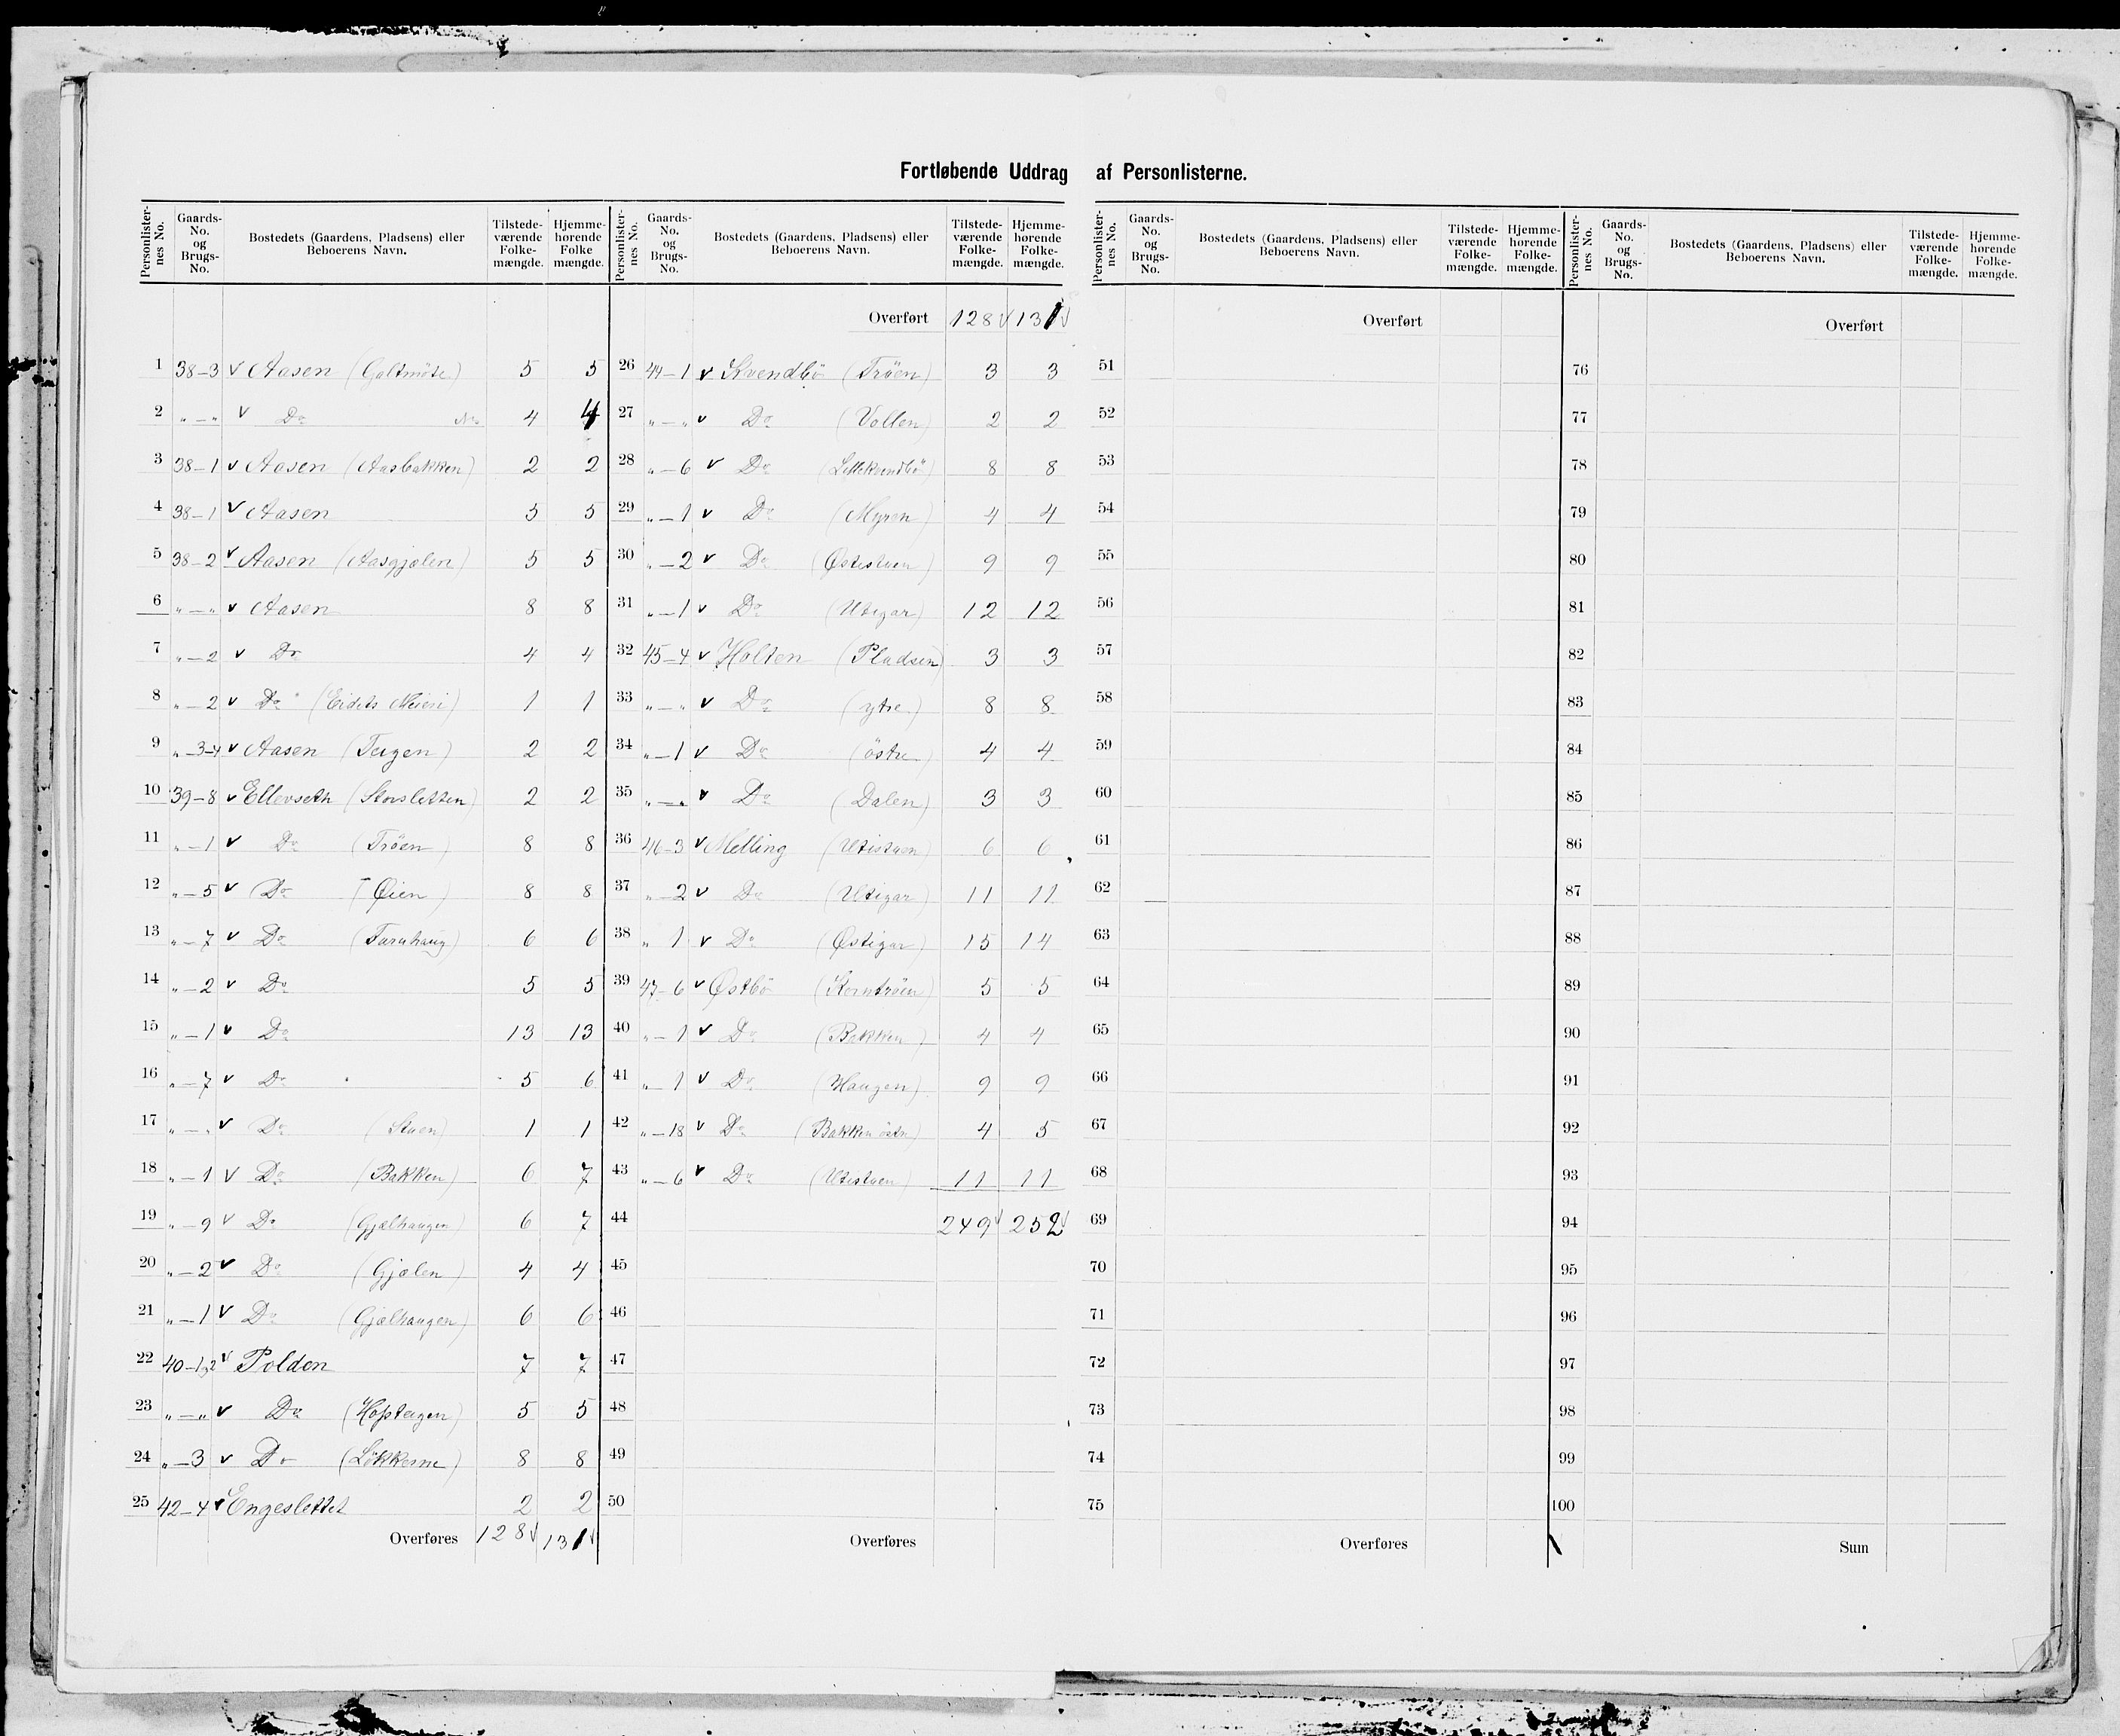 Fortløbende Uddrag af Personlisterne.
Personlisternes No. Gaards-No. og Brugs-No. Bostedets (Gaardens, Pladsens) eller Beboerens Navn. Tilstedeværende Folkemængde. Hjemmehørende Folkemængde.
1 38-3 v Aasen (Galtmöte) 5 5
2 „-„ v Do 4 4
3 38-1 v Aasen (Aasbakken) 2 2
4 38-1 v Aasen 5 5
5 38-2 v Aasen (Aasgjølen) 5 5
6 „-„ v Aasen 8 8
7 „-2 v Do 4 4
8 „-2 v Do (Eidets Meieri) 1 1
9 „-3-4 v Aasen (Teigen) 2 2
10 39-8 v Ellevseth (Storsletten) 2 2
11 „-1 v Do (Tröen) 8 8
12 „-5 v Do (Øien) 8 8
13 „-7 v Do (Tarnhaug) 6 6
14 „-2 v Do 5 5
15 „-1 v Do 13 13
16 „-7 v Do 5 6
17 „-„ v Do (Stuen) 1 1
18 „-1 v Do (Bakken) 6 7
19 „-9 v Do (Gjælhaugen) 6 7
20 „-2 v Do (Gjølen) 4 4
21 „-1 v Do (Gjælhaugen) 6 6
22 40-1,2 v Polden 7 7
23 „-„ v Do (Hopteigen) 5 5
24 „-3 v Do (Løkkerne) 8 8
25 42-4 v Engeslettet 2 2
Overføres 128 v 131 v
Personlisternes No. Gaards-No. og Brugs-No. Bostedets (Gaardens, Pladsens) eller Beboerens Navn. Tilstedeværende Folkemængde. Hjemmehørende Folkemængde.
Overført 128 v 131 v
26 44-1 v Kvendbö (Tröen) 3 3
27 „-„ v Do (Vollen) 2 2
28 „-6 v Do (Lillekvendbö) 8 8
29 „-1 v Do (Myren) 4 4
30 „-2 v Do (Østistuen) 9 9
31 „-1 v Do (Utigar) 12 12
32 45-4 v Holten (Pladsen) 3 3
33 „-„ v Do (ytre) 8 8
34 „-1 v Do (östre) 4 4
35 „-„ v Do (Dalen) 3 3
36 46-3 v Melling (Utistuen) 6 6
37 „-2 v Do (Utigar) 11 11
38 „ 1 v Do (Østigar) 15 14
39 47-6 v Østbö (Korntröen) 5 5
40 „-1 v Do (Bakken) 4 4
41 „ 1 v Do (Haugen) 9 9
42 „-18 v Do (Bakken östre) 4 5
43 „-6 v Do (Utistuen) 11 11
44 249 v 252 v
45
46
47
48
49
50
Overføres
Personlisternes No. Gaards-No. og Brugs-No. Bostedets (Gaardens, Pladsens) eller Beboerens Navn. Tilstedeværende Folkemængde. Hjemmehørende Folkemængde.
Overført
51
52
53
54
55
56
57
58
59
60
61
62
63
64
65
66
67
68
69
70
71
72
73
74
75
Overføres
Personlisternes No. Gaards-No. og Brugs-No. Bostedets (Gaardens, Pladsens) eller Beboerens Navn. Tilstedeværende Folkemængde. Hjemmehørende Folkemængde.
Overført
76
77
78
79
80
81
82
83
84
85
86
87
88
89
90
91
92
93
94
95
96
97
98
99
100
Sum